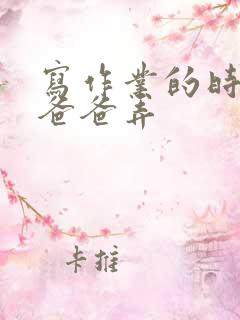 寫作業的時
爸爸弄
卡推